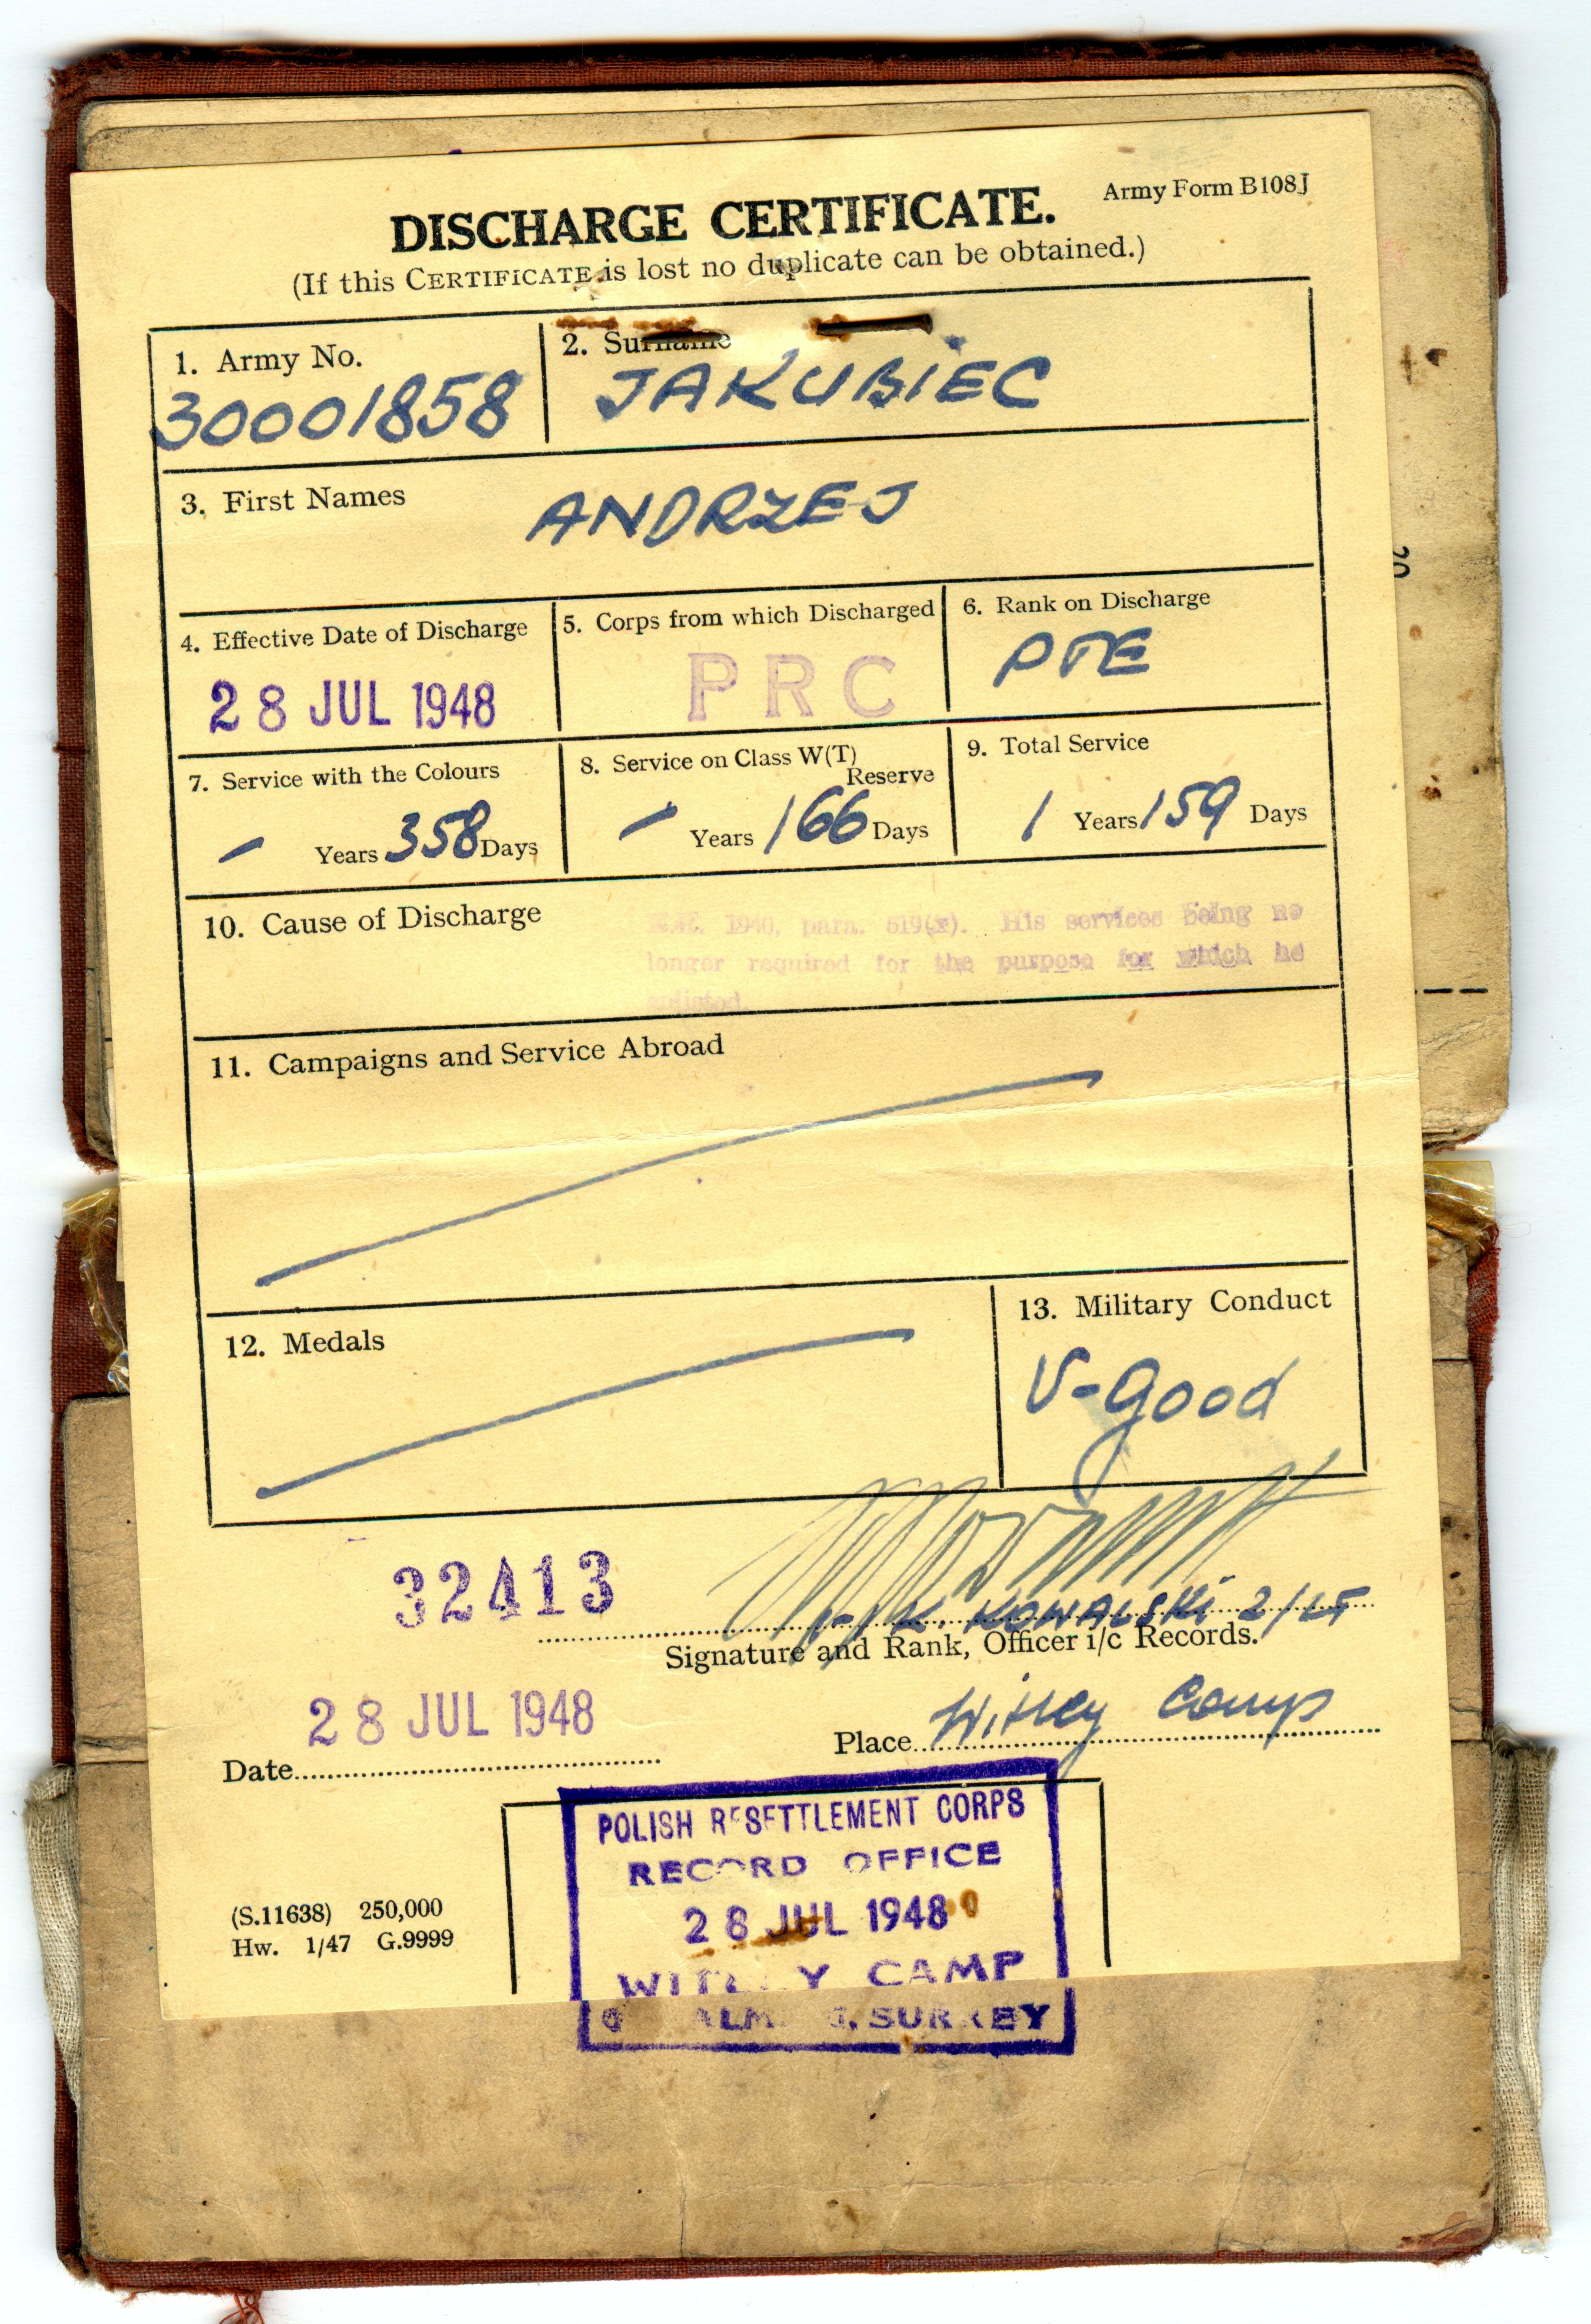 Army Form B108J
DISCHARGE CERTIFICATE.
(If this CERTIFICATE is lost no duplicate can be obtained.)
1. Army No.
30001858
2. Surname
JAKUBIEC
3. First Names
ANDRZEJ
4. Effective Date of Discharge
28 JUL 1948
5. Corps from which Discharged
PRC
6. Rank on Discharge
PTE
7. Service with the Colours
– Years 358 Days
8. Service on Class W(T)
Reserve
– Years 166 Days
9. Total Service
1 Years 159 Days
10. Cause of Discharge
1940, para. 519(x). His services being no
longer required for the purpose for which he
enlisted.
11. Campaigns and Service Abroad
12. Medals
13. Military Conduct
V-good
32413
K. KOWALSKI 2/LT
Signature and Rank, Officer i/c Records.
28 JUL 1948
Date
Place Witley Camp
POLISH RESETTLEMENT CORPS
RECORD OFFICE
28 JUL 1948
WITLEY CAMP
SURREY
(S.11638) 250,000
Hw. 1/47 G.9999
20